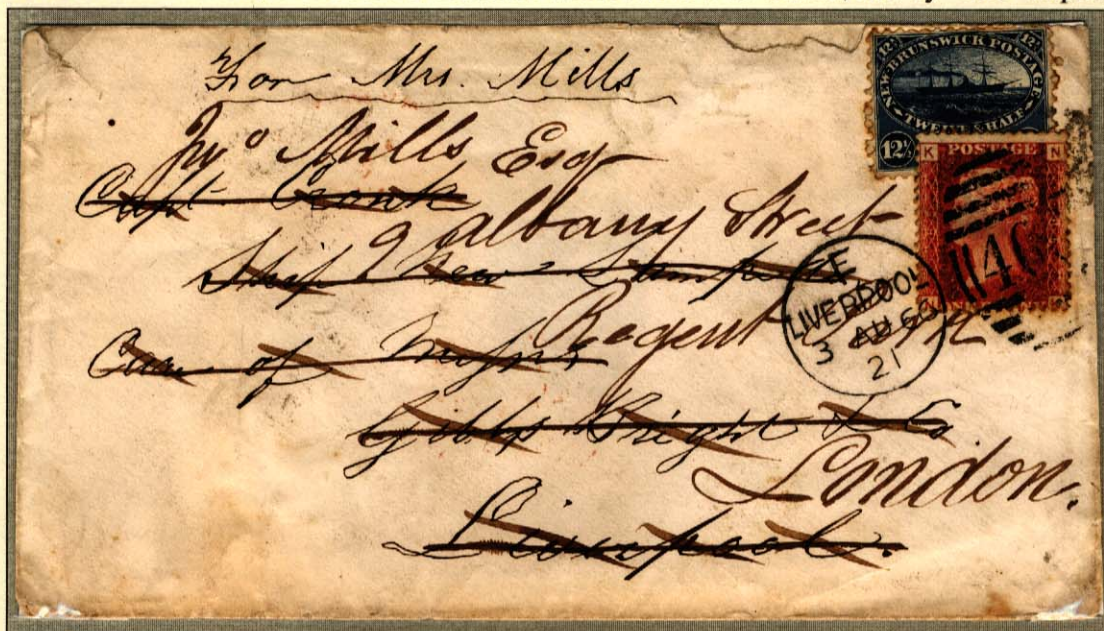 For Mrs. Mills
Jno Mills Esq
Capt Cronk
9 Albany Street
Ship New
Regent Park
Care of Messrs
Gibbs Bright & Co
London.
Liverpool.
12½ 12½
NEW BRUNSWICK POSTAGE
TWELVE & HALF
12½
K POSTAGE N
466
E
LIVERPOOL
3 AU 60
21